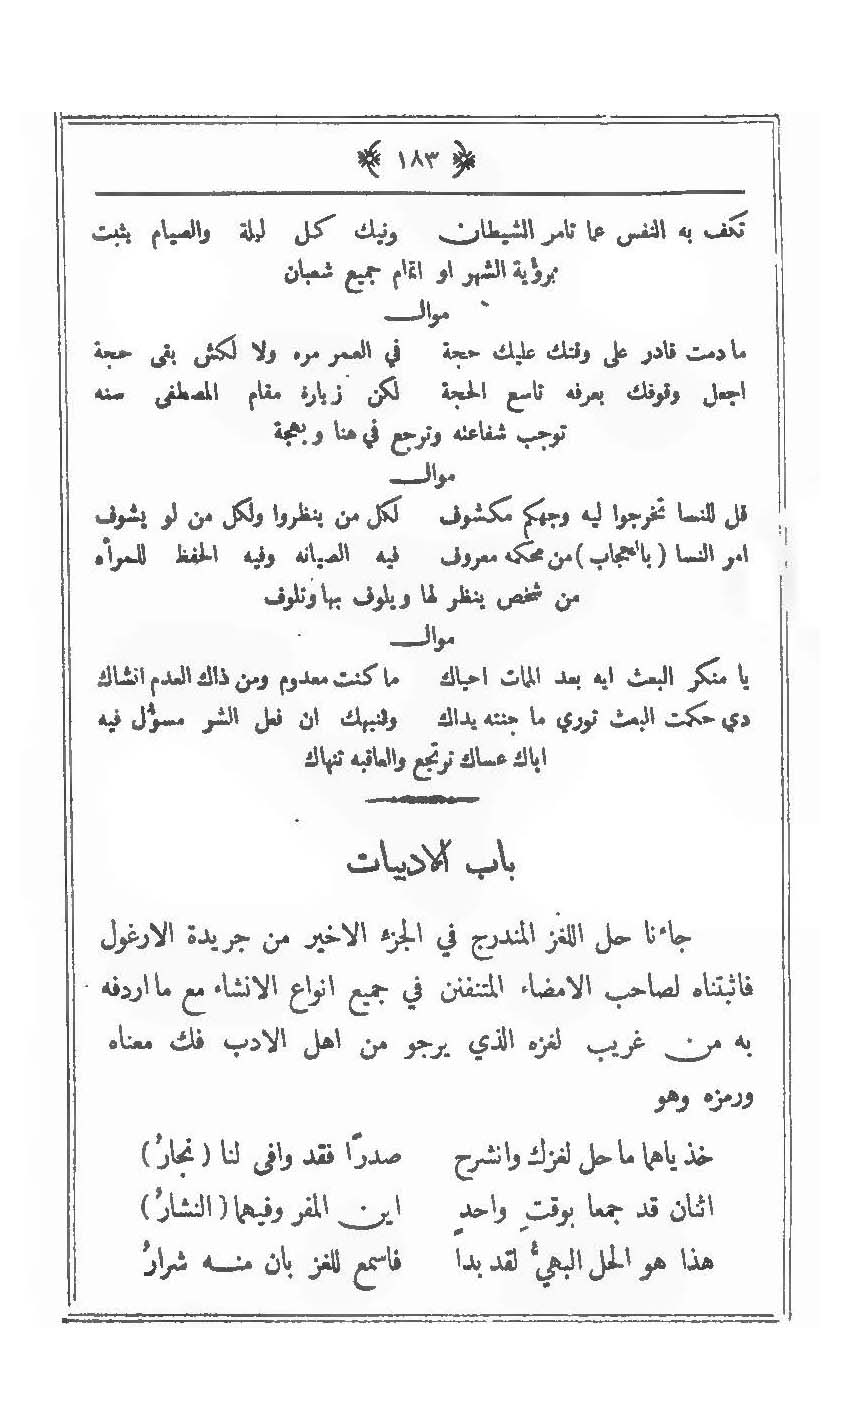 ١٨٣
تكف به النفس عما تامر الشيطان ونيك كل ليلة والصيام يثبت
برؤية الشهر او اتمام جميع شعبان
موال
ما دمت قادر على وقتك عليك حجة في العمر مره ولا لكش بقى حجة
اجعل وقوفك بعرفه تاسع الحجة لكن زيارة مقام المصطفى سنه
توجب شفاعته وترجع في هنا وبهجة
موال
قل للنسا تخرجوا ليه وجهكم مكشوف لكل من ينظروا ولكل من لو يشوف
امر النسا (بالحجاب) من محكمه معروف فيه الصيانه وفيه الحفظ للمرأه
من شخص ينظر لها ويلوف بها وتلوف
موال
يا منكر البعث ايه بعد الممات احياك ما كنت معدوم ومن ذاك العدم انشاك
دي حكمت البعث توري ما جنته يداك وتنبهك ان فعل الشر مسؤل فيه
اياك عساك ترتجع والعاقبه تنهاك
باب الادبيات
جاءنا حل اللغز المندرج في الجزء الاخير من جريدة الارغول
فاثبتناه لصاحب الامضاء المتفنن في جميع انواع الانشاء مع ما اردفه
به من غريب لغزه الذي يرجو من اهل الادب فك معناه
ورمزه وهو
خذ ياهما ما حل لغزك وانشرح صدرًا فقد وافى لنا (نجارُ)
اثنان قد جمعا بوقتٍ واحدٍ اين المفر وفيهما (النشارُ)
هذا هو الحل البهيُّ لقد بدا فاسمع للغز بان منه شرارُ